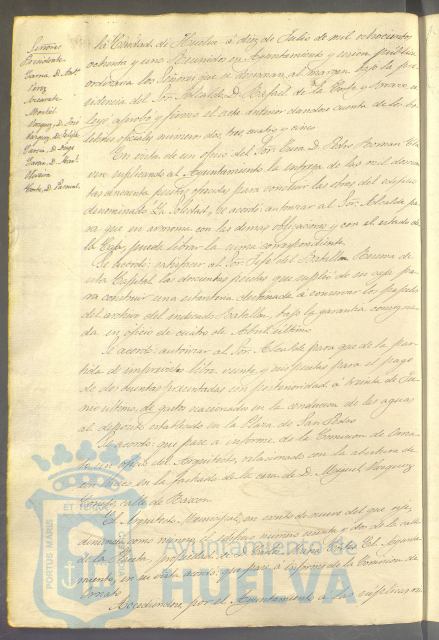 Señores
Presidente
Garcia, D. Ant.
Pérez
Montiel
Vazquez, D. José
Vazquez, D. Felipe
Garcia, D. Diego
Garcia, D. Man.
Oliveira
Conde, D. Pascual
la Ciudad de Huelva a diez de Julio de mil ochocientos
ochenta y uno Reunidos en Ayuntamiento y sesion publica
ordinaria los Señores que se nombran al margen bajo la pre
sidencia del Sor. Alcalde D. Rafael de la Corte y
leyó aprobó y firmó el acta anterior dandose cuenta de los bo
letines oficiales numeros dos tres cuatro y cinco
En vista de un oficio del Sor. Cura D. Pedro Roman Cla
suplicando al Ayuntamiento la entrega de las mil doscien
tas cincuenta pesetas ofrecidas para concluir las obras del edificio
denominado La Soledad, Se acordó: autorizar al Sor. Alcalde pa
ra que en armonia con las demas obligaciones y con el estado de
la Caja, pueda librar la suma correspondiente.
Se acordó: satisfacer al Sor. Jefe del Batallon Reserva de
esta Capital las doscientas pesetas que suplió de su caja pa
ra construir una estanteria destinada a conservar los papeles
del archivo del indicado Batallon, bajo la garantia consigna
da en oficio de cuatro de Abril último
Se acordó autorizar al Sor. Alcalde para que de la par
tida de imprevistos libre veinte y seis pesetas para el pago
de dos cuentas presentadas con posterioridad a treinta de Ju
nio último, de gastos ocasionados en la conduccion de las aguas
al deposito establecido en la Plaza de San Pedro
Se acordó: que pase a informe de la Comision de Orna
to un oficio del Arquitecto, relacionado con la abertura de
en la fachada de la casa de D. Miguel Vazquez
calle de
El Arquitecto Municipal, en vista de
como numero veinte y dos de la calle
de la Placeta, propiedad de El Ayunta
miento, en su vista acordó: que pase a informe de la Comision de
Ornato
Accediendose por el Ayuntamiento a las suplicas
PORTUS MARIS
ET TERRAE
Ayuntamiento de
HUELVA